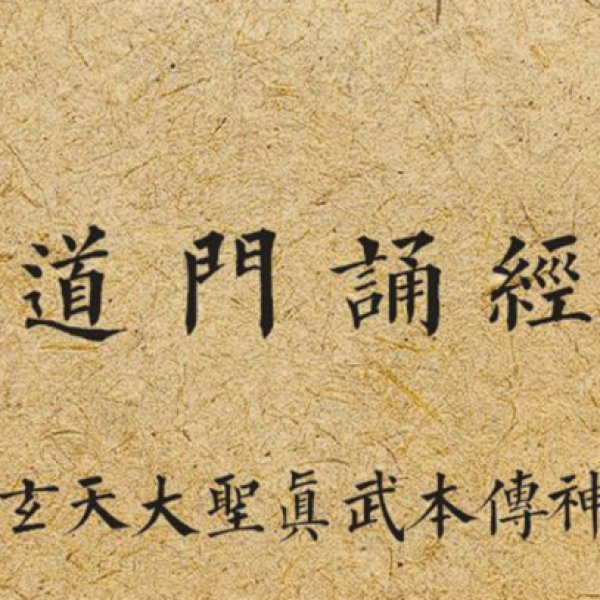 道門誦經
玄天大聖眞武本傳神